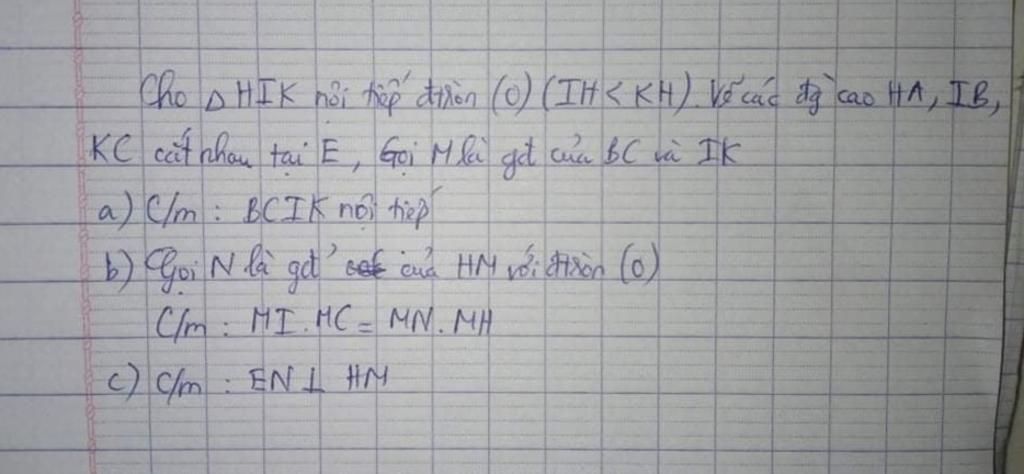 Cho Δ HIK nội tiếp đtròn (O) (IH < KH). Vẽ các đg` cao HA, IB,
KC cắt nhau tại E, Gọi M là gđ của BC và IK
a) C/m : BCIK nội tiếp
b) Gọi N là gđ' của HM với đtròn (O)
C/m : MI . MC = MN . MH
c) C/m : EN ⊥ HM